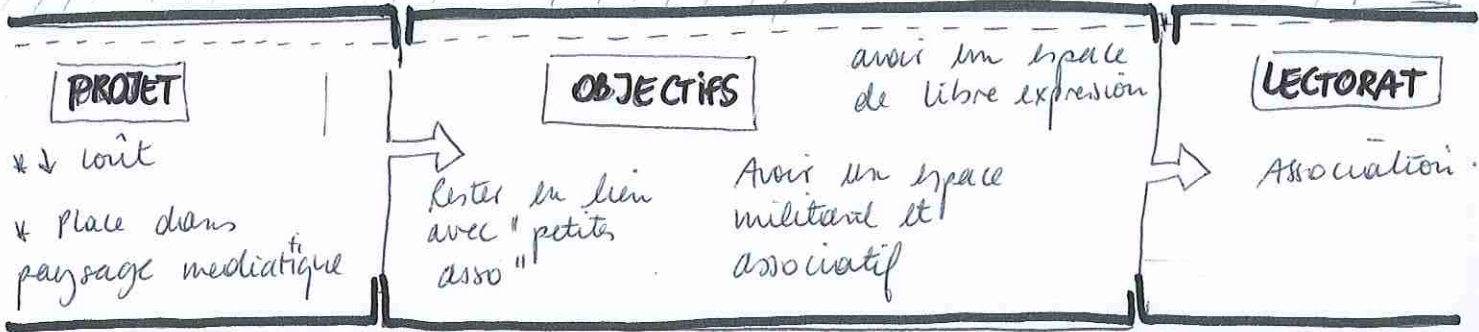 PROJET
* ↓ coût
* Place dans
paysage mediatique
OBJECTIFS
avoir un espace
de libre expression
Rester en lien
avec "petites
asso"
Avoir un espace
militant et
associatif
LECTORAT
Association.